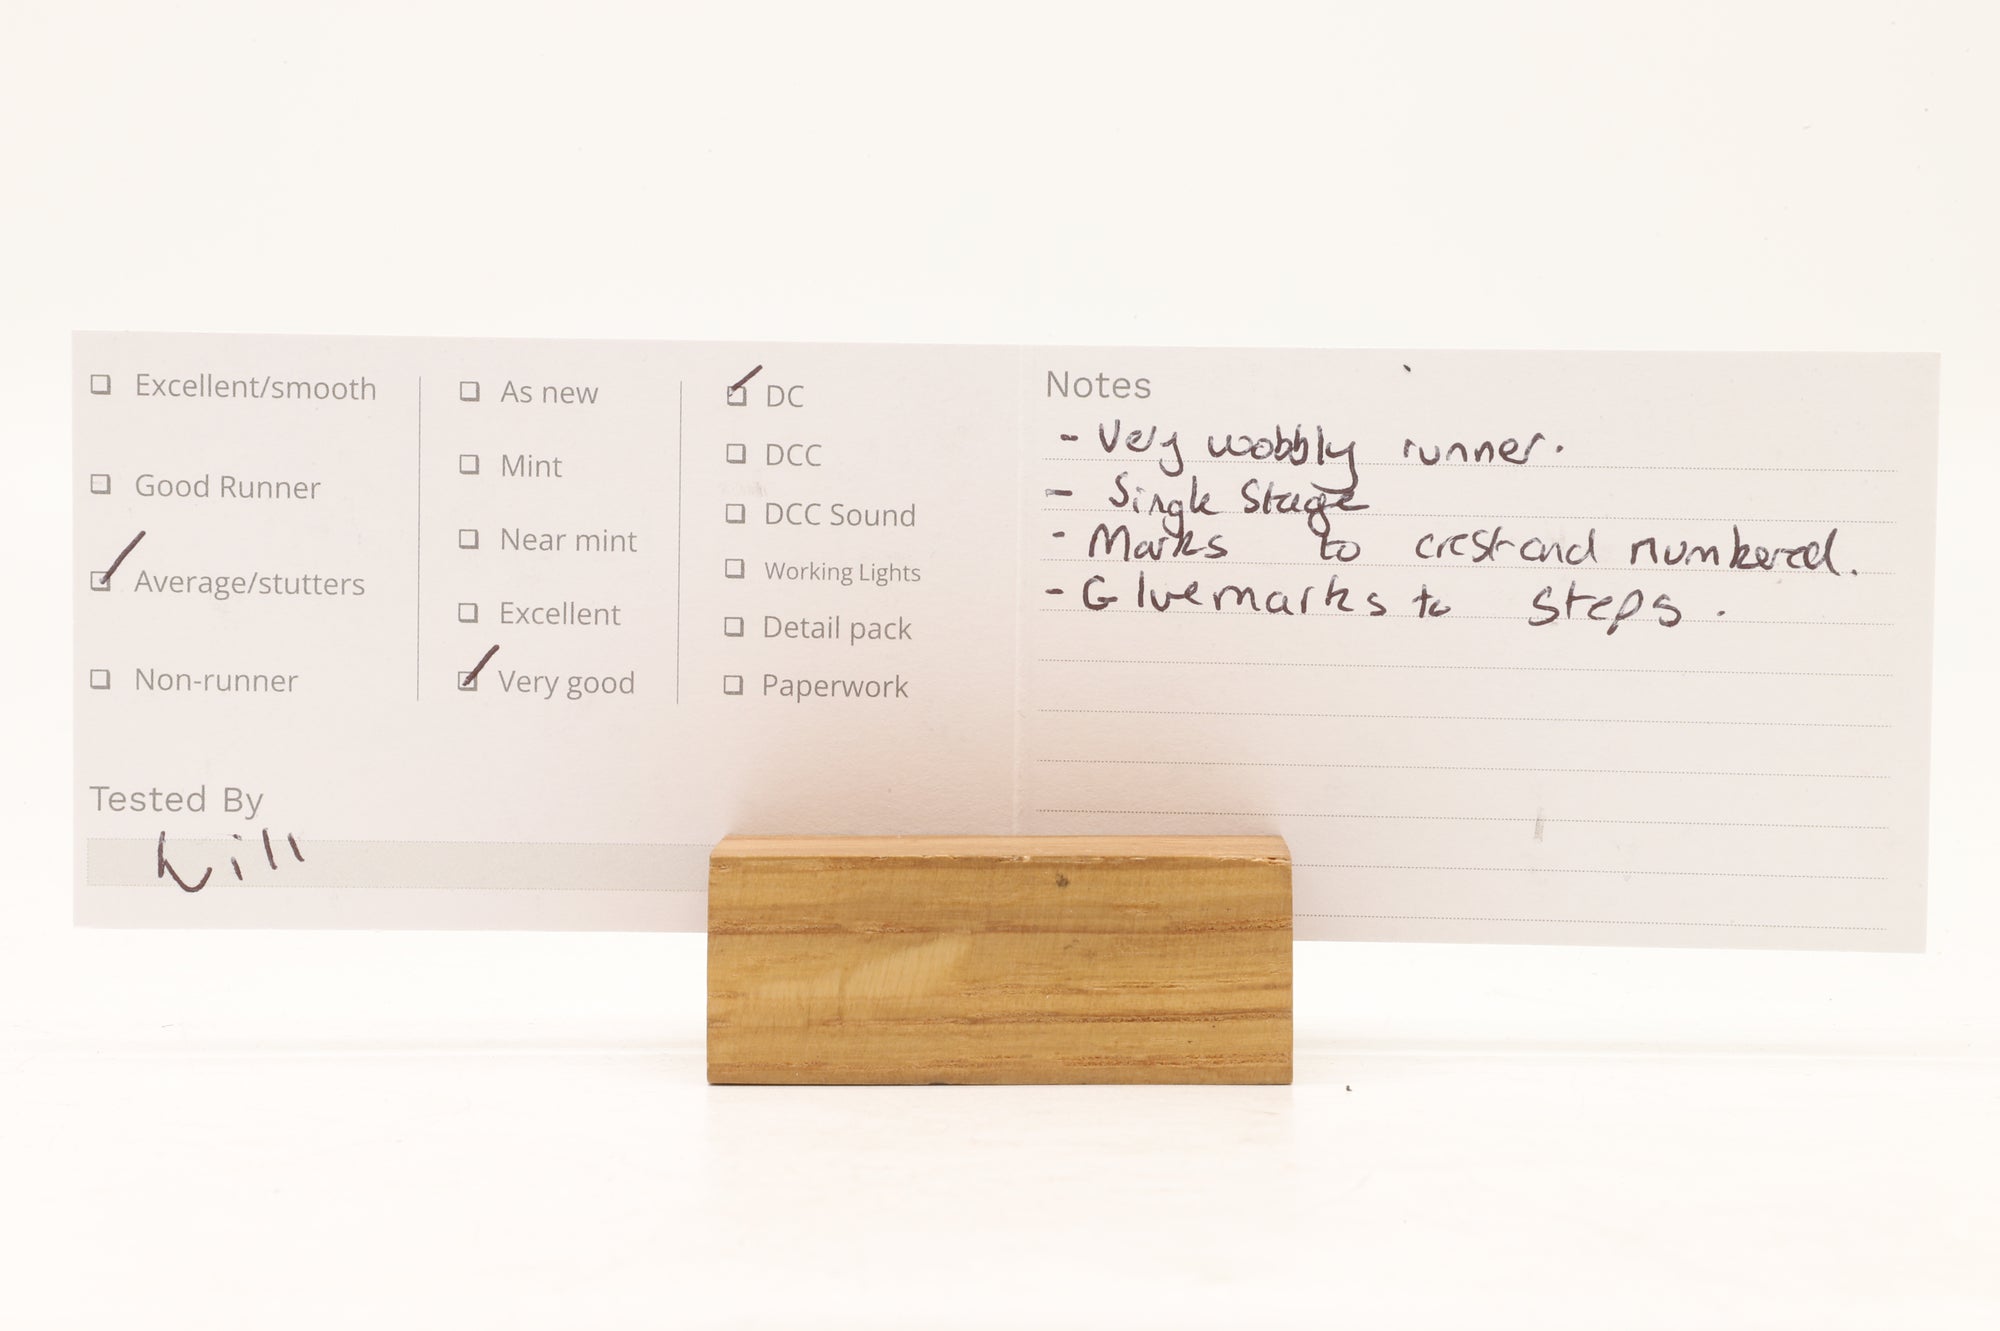 Excellent/smooth
Good Runner
Average/stutters
Non-runner
As new
Mint
Near mint
Excellent
Very good
DC
DCC
DCC Sound
Working Lights
Detail pack
Paperwork
Tested By
Will
Notes
- Very wobbly runner.
- Single Stage
- Marks to crest and numbered.
- Glue marks to steps.